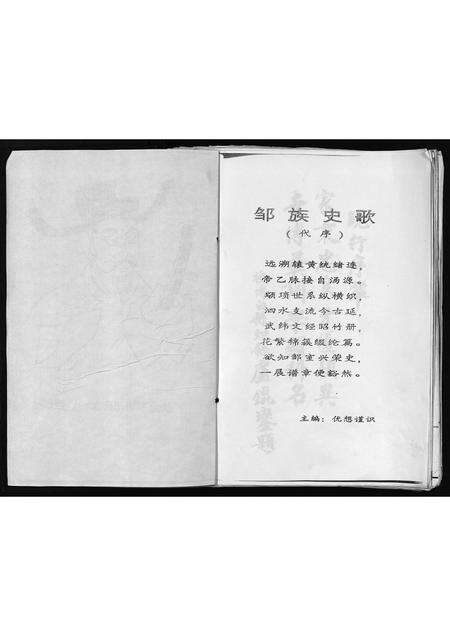 邹族史歌
(代序)
远溯轩黄统绪连,
帝乙脉接自汤源。
颛顼世系纵横织,
泗水支流今古延。
武纬文经昭竹册,
花繁锦簇缀纶篇。
欲知邹室兴荣史,
一展谱章便豁然。
主编:优想谨识